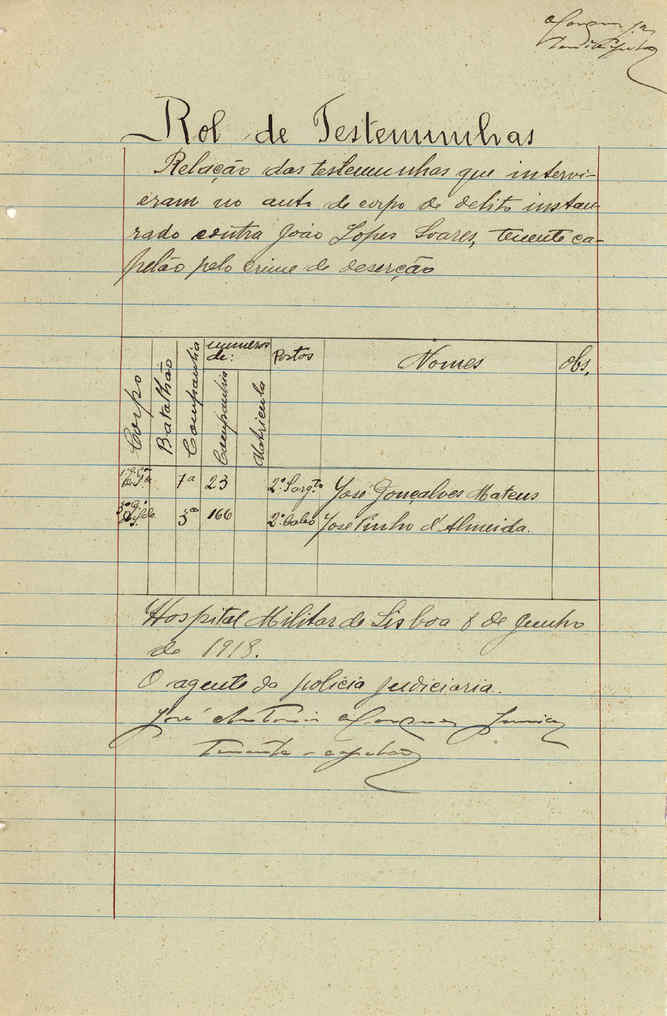 Rol de Testemunhas
Relação das testemunhas que intervi-
eram no auto de corpo de delito instau-
rado contra João Lopes Soares, tenente ca-
pelão pelo crime de deserção
Corpo
Batalhão
Companhia
numeros de:
Companhia
Matricula
Postos
Nomes
Obs.
1ª 23 2º Sargto José Gonçalves Mateus
3ª 166 2º Cabo José Pinho d'Almeida.
Hospital Militar de Lisboa 8 de Junho
de 1918.
O agente da policia judiciaria.
José Antonio Junior
Tenente capelão